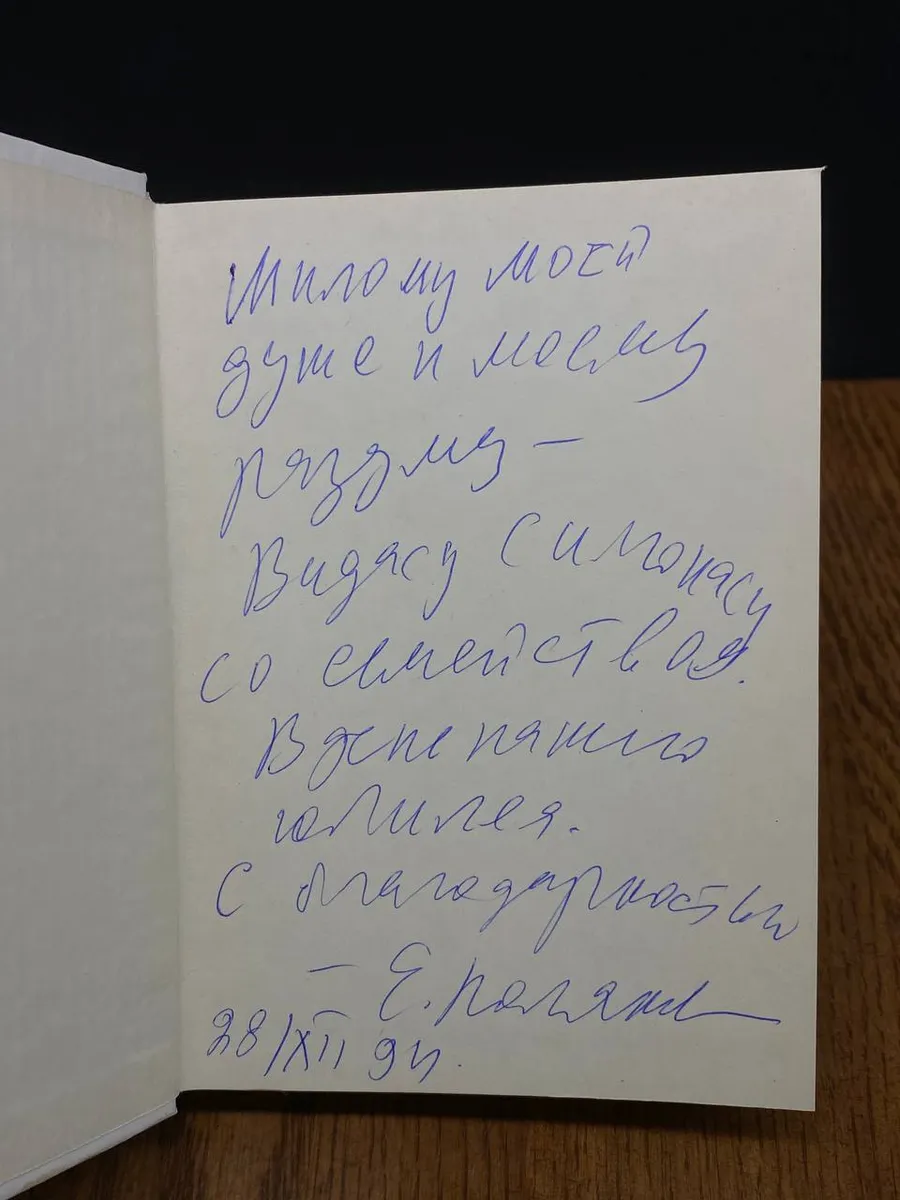 Милому моей
душе и моему
разуму —
Видасу Симонасу
со семейством.
В дни нашего
юбилея.
С благодарностью
— Е.
28/XII 94.